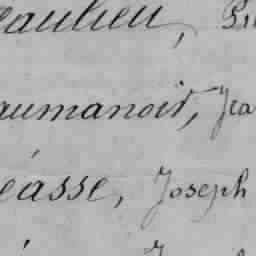 eaulieu,
aumanoir, Jea
éasse, Joseph